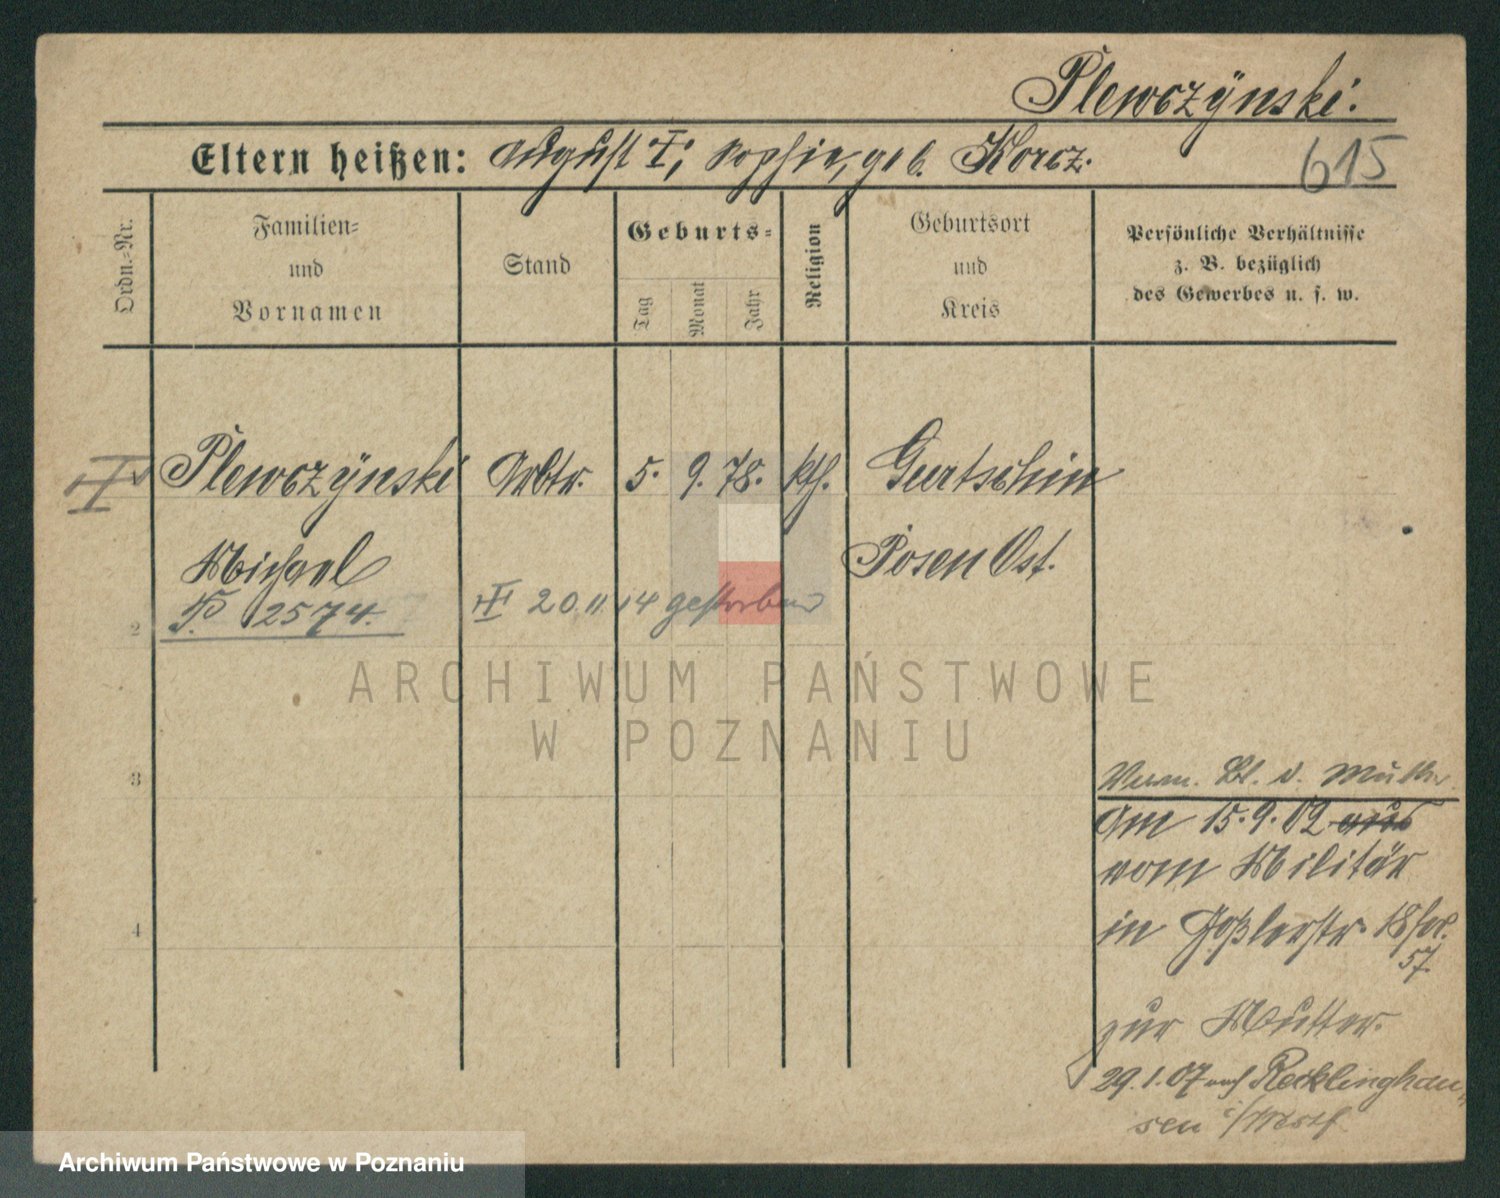 Plewczÿnski.
Eltern heißen: August †; Sophie, geb. Korcz.
615
Ordn.-Nr.
Familien- und Vornamen
Stand
Geburts-
Tag
Monat
Jahr
Religion
Geburtsort und Kreis
Persönliche Verhältnisse
z. B. bezüglich
des Gewerbes u. s. w.
Plewczÿnski Arbtr. 5. 9. 78. kth. Gurtschin
Michael Posen Ost.
P. 2574.
† 20 11 14 gestorben
2
ARCHIWUM PAŃSTWOWE
W POZNANIU
3
4
Bl. d. Mutter
Am 15.9.02 aus
vom Militär
in Goßlerstr. 18
57.
zur Mutter.
29.1.07 nach Recklinghau-
sen i/Westf.
Archiwum Państwowe w Poznaniu